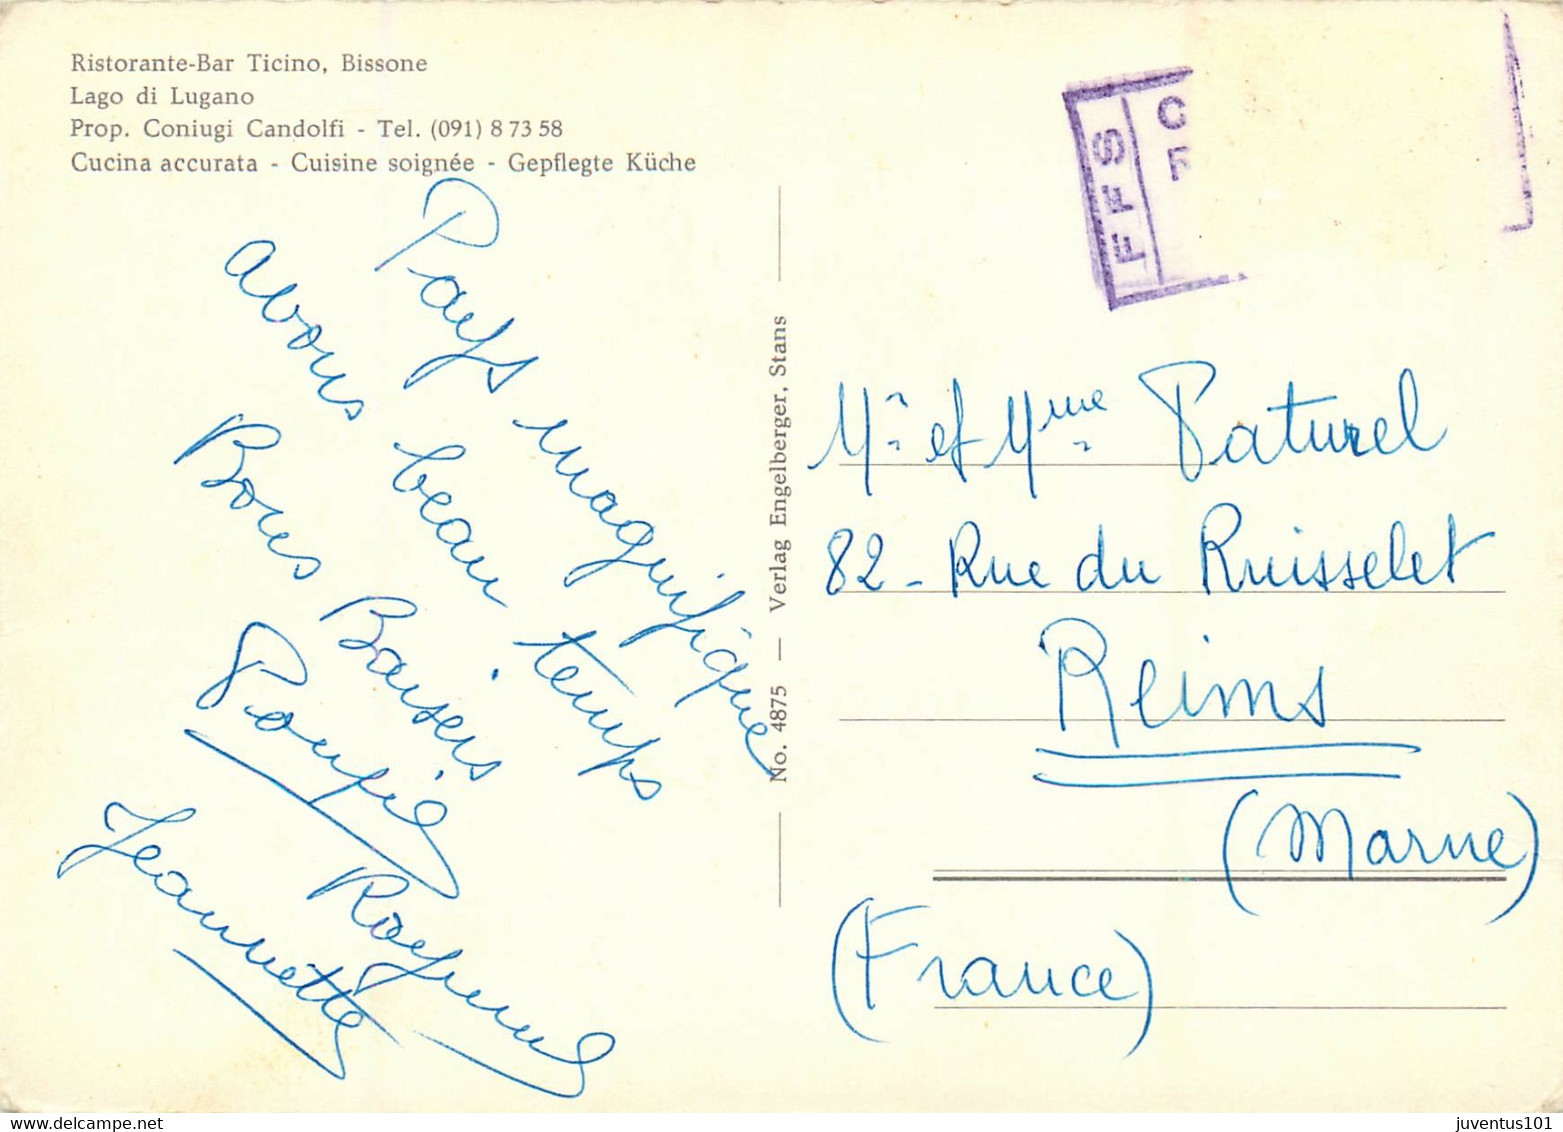 Ristorante-Bar Ticino, Bissone
Lago di Lugano
Prop. Coniugi Candolfi - Tel. (091) 8 73 58
Cucina accurata - Cuisine soignée - Gepflegte Küche
Pays magnifique
avons beau temps
Bons Baisers
Raymond
Jeannette
No. 4875 — Verlag Engelberger, Stans
FFS
C
F
Mr et Mme Paturel
82 - Rue du Ruisselet
Reims
(Marne)
(France)
juventus101